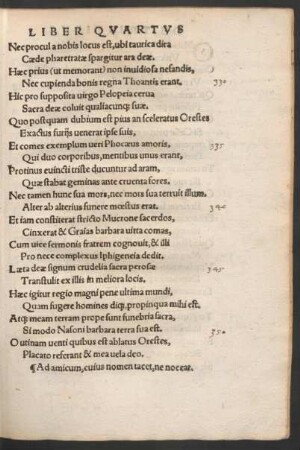 LIBER QVARTVS
Nec procul a nobis locus est, ubi taurica dira
Cæde pharetratæ spargitur ara deæ.
Hæc prius (ut memorant) non inuidiosa nefandis,
Nec cupienda bonis regna Thoantis erant. 330
Hic pro supposita uirgo Pelopeia cerua
Sacra deæ coluit qualiacunq; suæ.
Quo postquam dubium est pius an sceleratus Orestes
Exactus furijs uenerat ipse suis,
Et comes exemplum ueri Phocæus amoris, 335
Qui duo corporibus, mentibus unus erant,
Protinus euincti triste ducuntur ad aram,
Quæ stabat geminas ante cruenta fores.
Nec tamen hunc sua mors, nec mors sua terruit illum.
Alter ab alterius funere mœstus erat. 340
Et iam constiterat stricto Mucrone sacerdos,
Cinxerat & Graias barbara uitta comas,
Cum uice sermonis fratrem cognouit, & illi
Pro nece complexus Iphigeneia dedit.
Læta deæ signum crudelia sacra perosæ 345
Transtulit ex illis in meliora locis.
Hæc igitur regio magni pene ultima mundi,
Quam fugere homines diq; propinqua mihi est,
Atq; meam terram prope sunt funebria sacra,
Si modo Nasoni barbara terra sua est. 350
O utinam uenti quibus est ablatus Orestes,
Placato referant & mea uela deo.
¶ Ad amicum, cuius nomen tacet, ne noceat.